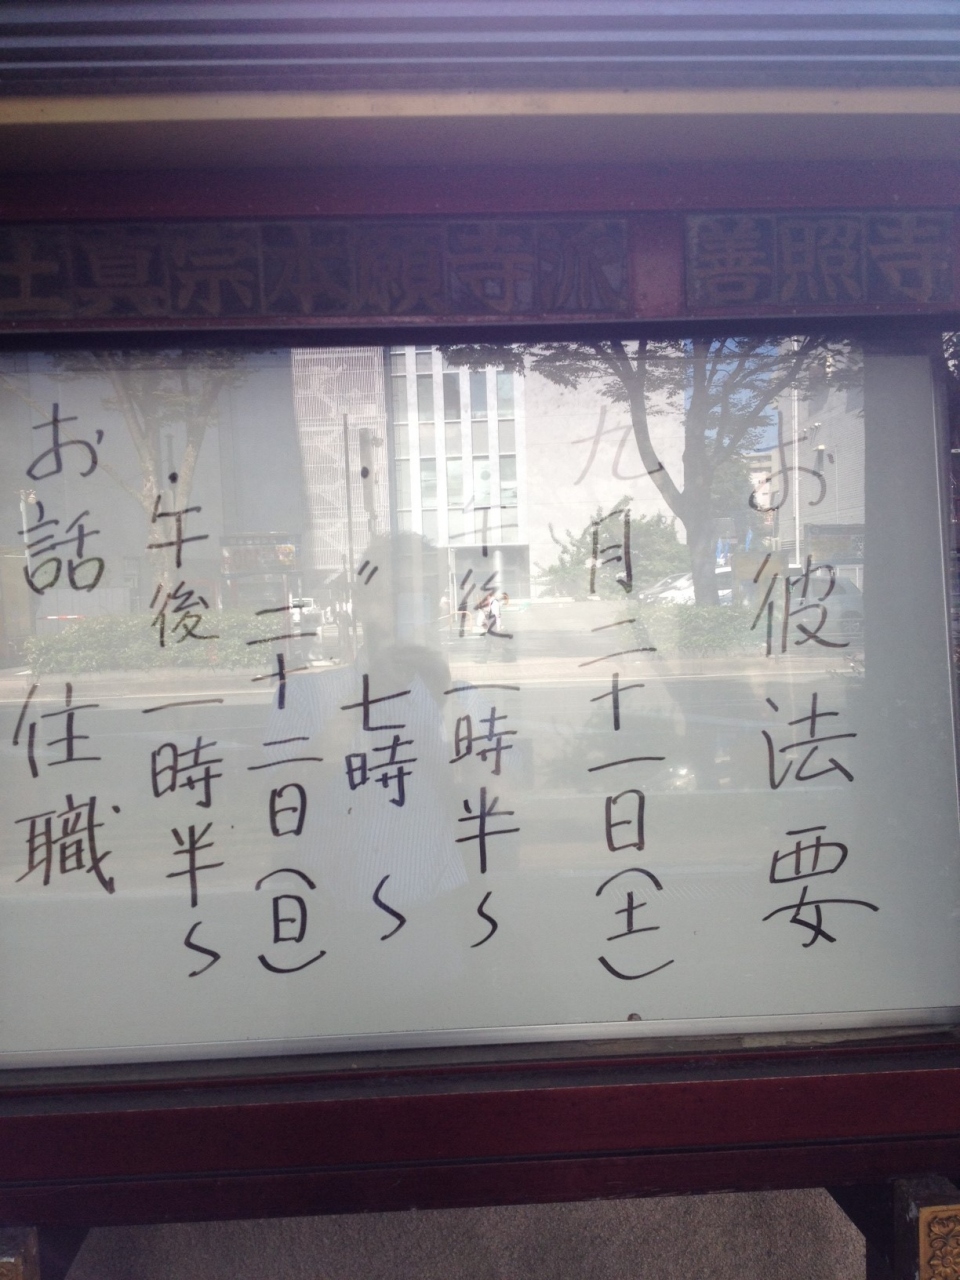 土真宗本願寺派
善照寺
お彼法要
九月二十一日(土)
・午後一時半〜
・〃七時〜
二十二日(日)
・午後一時半〜
お話 住職